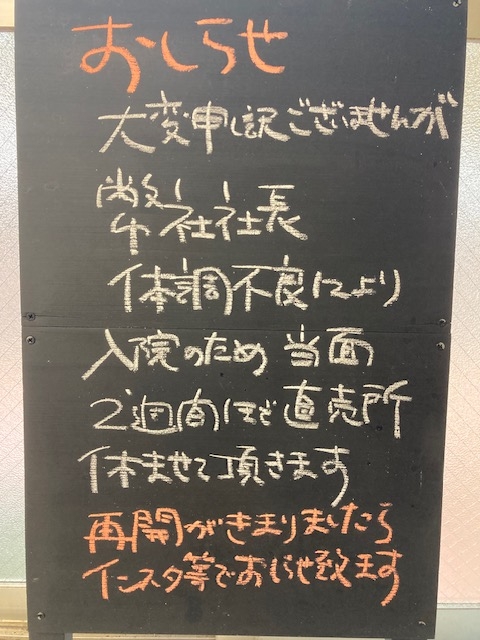 おしらせ
大変申し訳ございませんが
弊社社長
体調不良により
入院のため 当面
2週間ほど直売所
休ませて頂きます
再開がきまりましたら
インスタ等でおしらせ致ます